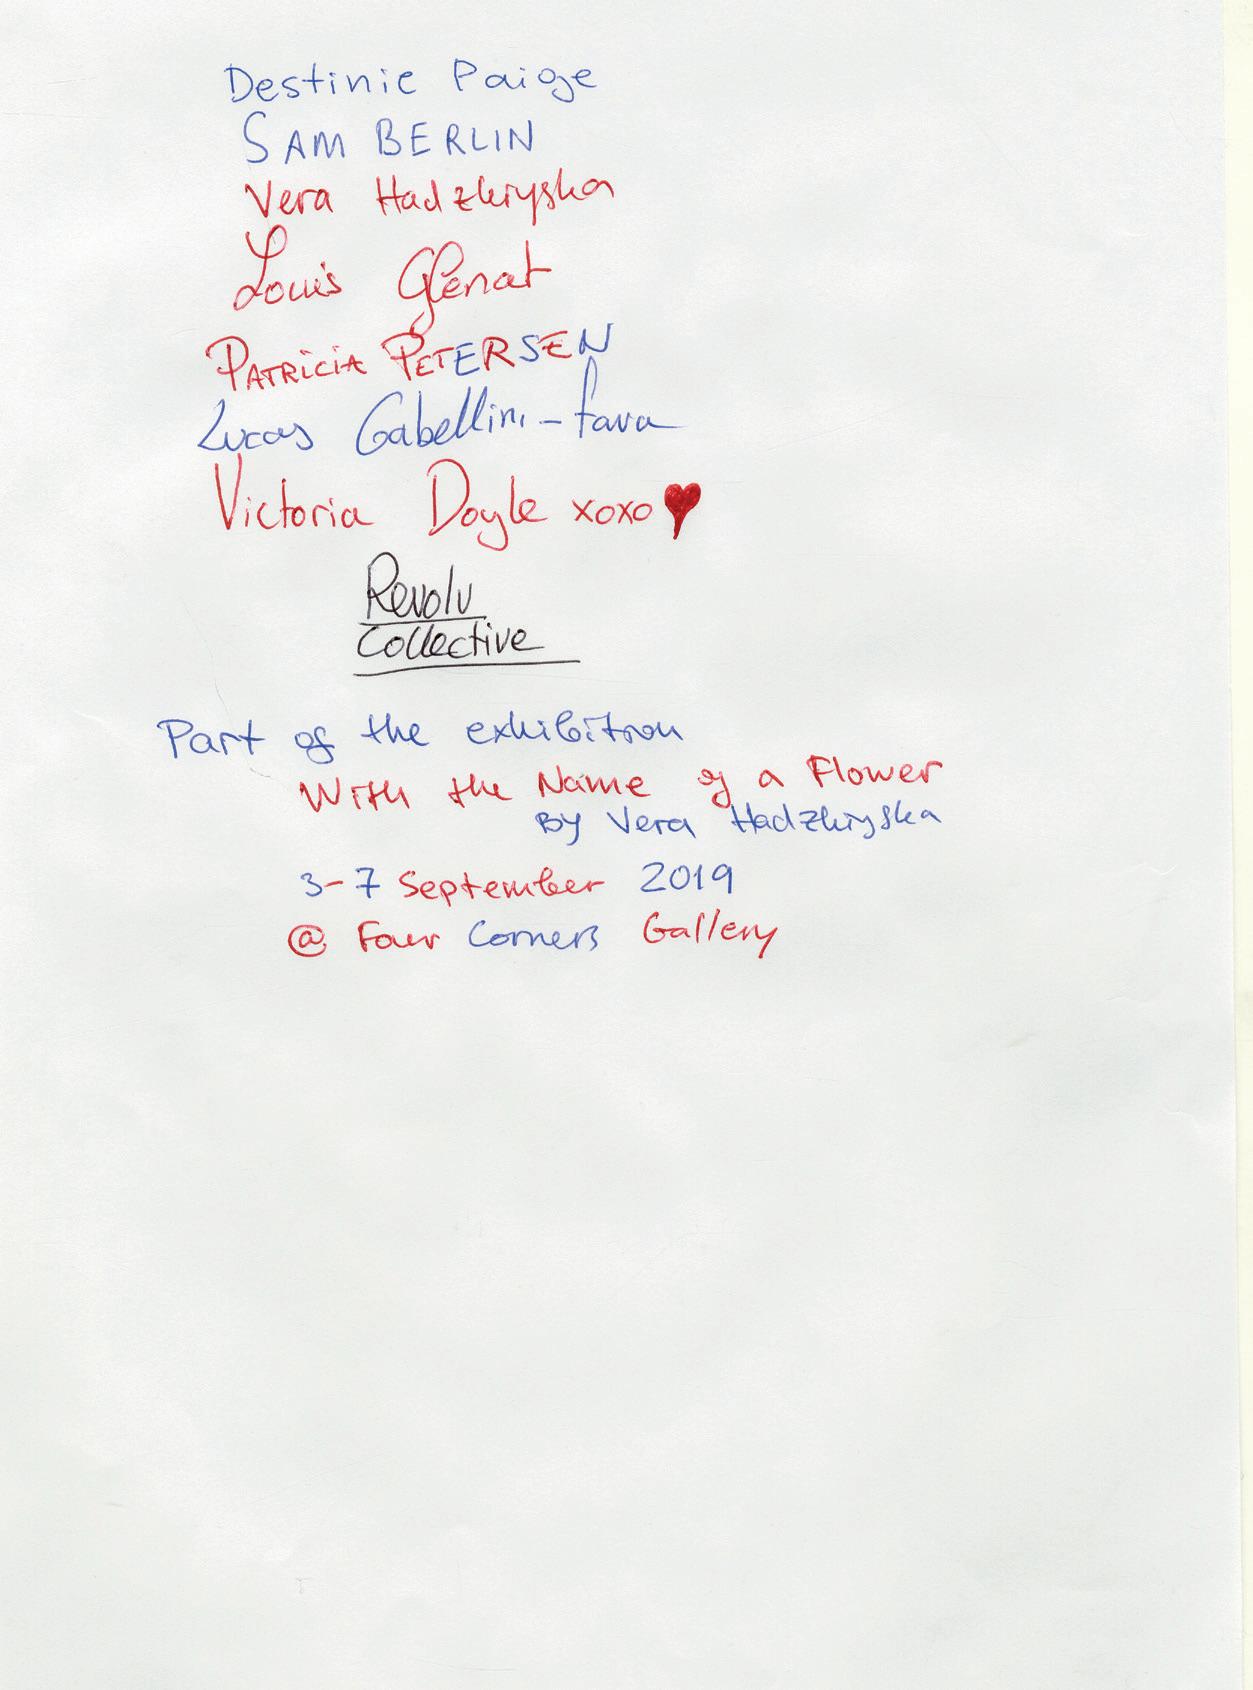 Destinie Paige
SAM BERLIN
Vera Hadzhiyska
Louis Glenat
PATRiCiA PETERSEN
Lucas Gabellini-Fava
Victoria Doyle xoxo♥
Revolv
Collective
Part of the exhibition
With the Name of a Flower
By Vera Hadzhiyska
3-7 September 2019
@ Four Corners Gallery